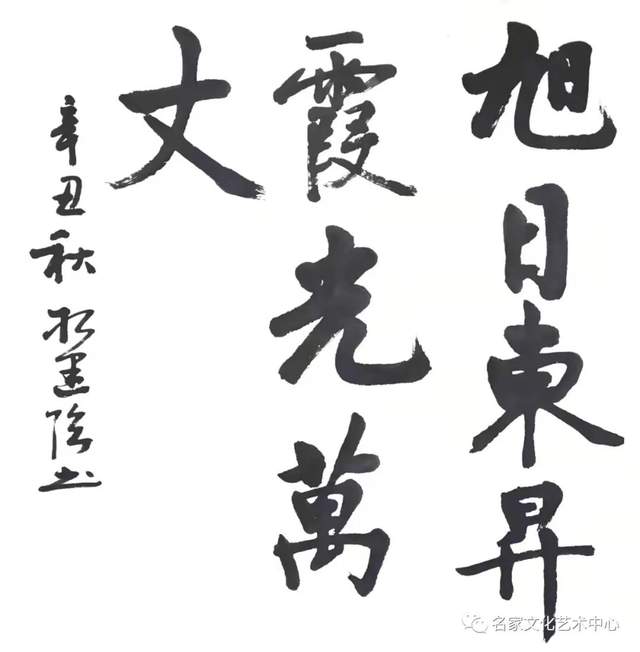 旭日東昇
霞光萬
丈
辛丑秋 书
名家文化艺术中心